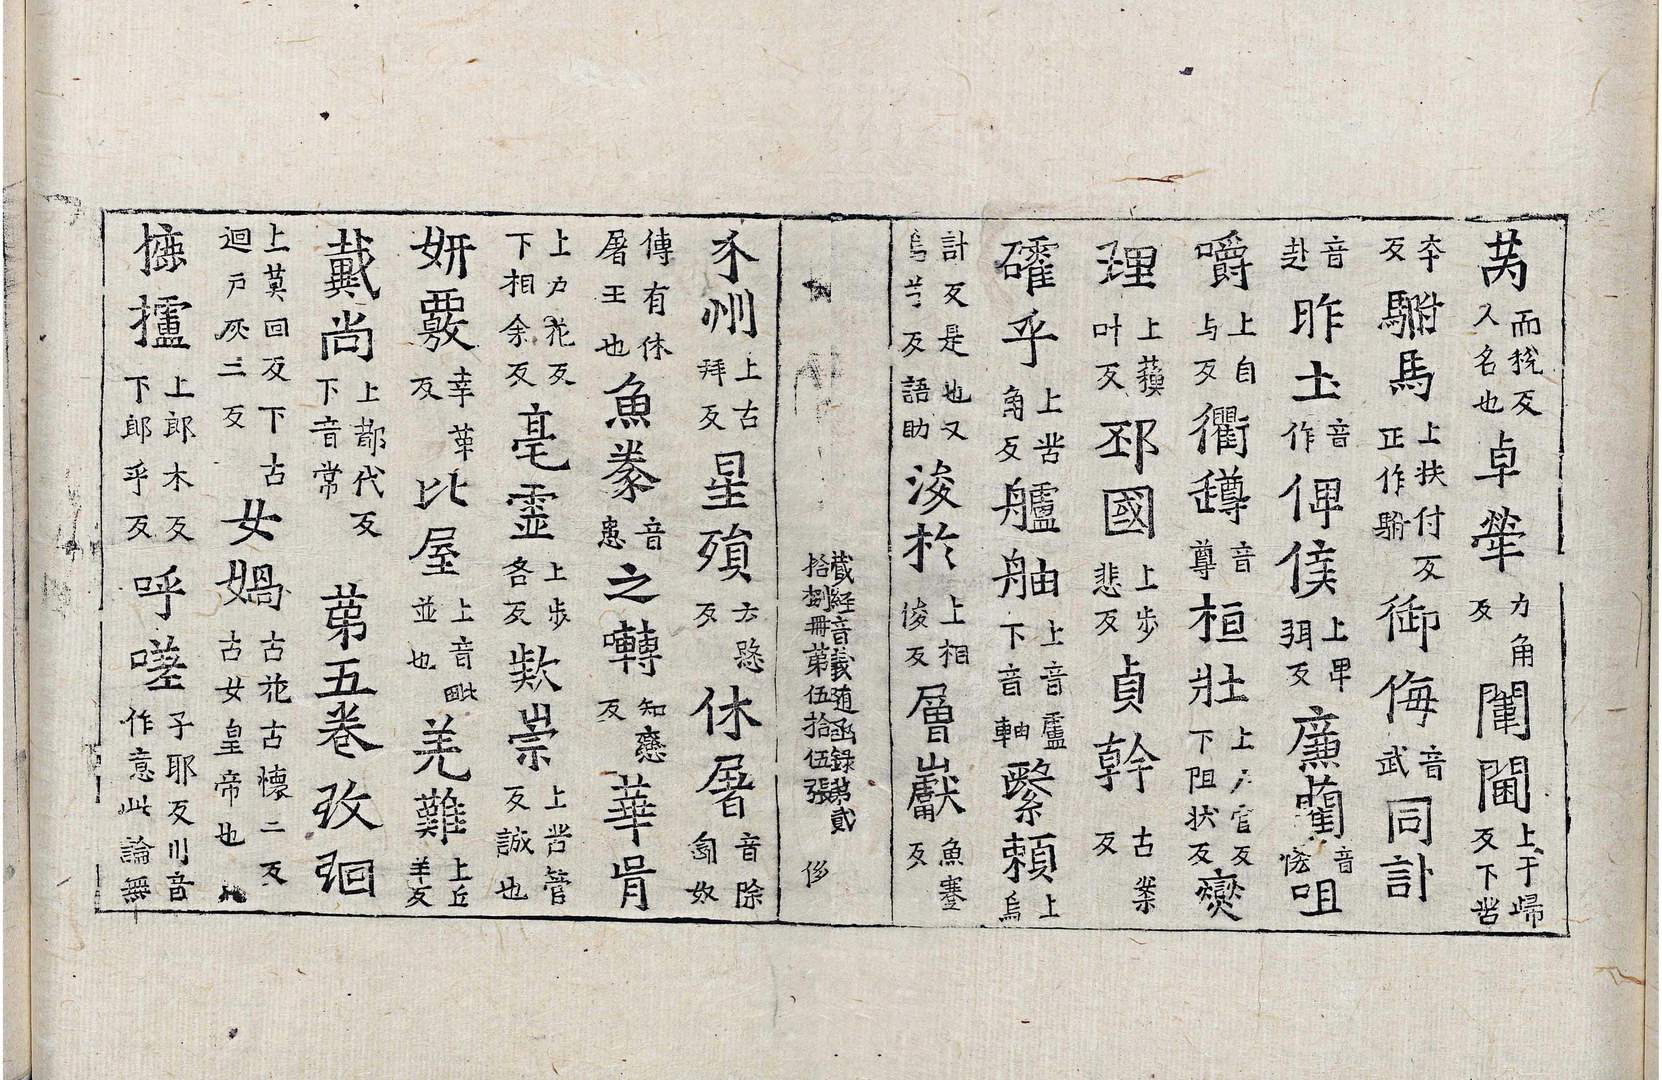 苪而梲反人名也卓犖力角反闈閫上于歸反下苦
夲反駙馬上扶付反正作駙御侮音武同訃
音赴昨土音作俾倰上卑弭反廉藺音恡咀
嚼上自与反衢蹲音尊桓壯上户官反下阻状反爕
理上蘓叶反邳國上步悲反貞幹古案反
礭乎上苦角反艫舳上音盧下音軸繄賴上烏
計反是也又烏兮反語助浚於上相俊反層巘魚蹇反
藏経音義随函錄第貳拾捌冊第伍拾伍張 㑥
氶州上古拜反星殞云愍反休屠音除匈奴
傳有休屠王也魚豢音患之囀知戀反華胥
上户花反下相余反亳霊上步各反欵崇上苦管反誠也
妍覈幸革反比屋上音毗並也羌難上丘羊反
戴尚上都代反下音常 苐五卷 孜徊
上莫回反下古迴户灰二反女媧古花古懷二反古女皇帝也
摝攎上郎木反下郎乎反呼嗟子耶反川音作意此論無